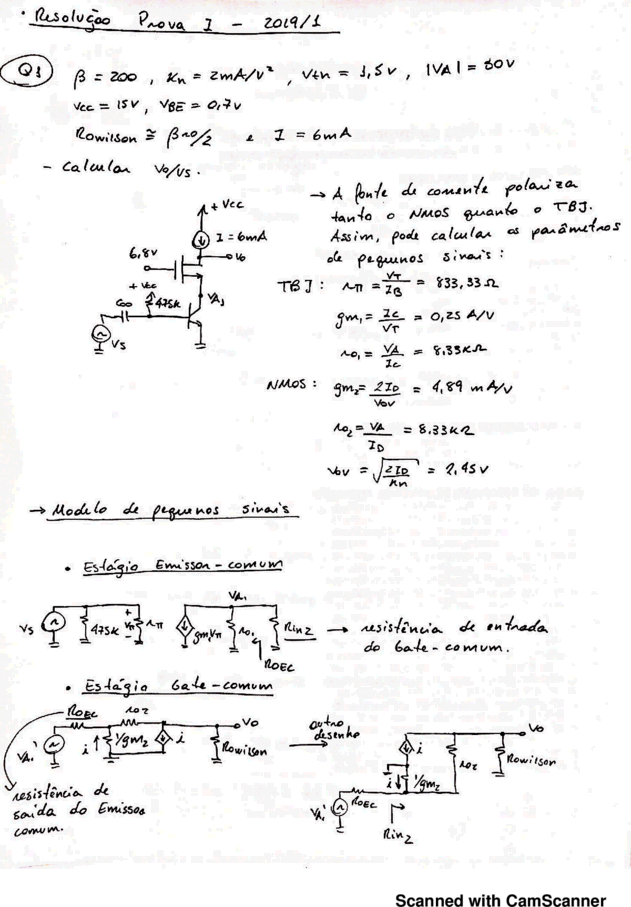 · Resolução Prova I - 2019/1
Q1) β = 200 , Kn = 2mA/V² , Vtn = 1,5V , |VA| = 50V
Vcc = 15V , VBE = 0,7V
Rowilson ≅ βro/2 e I = 6mA
- Calcular Vo/Vs.
→ A fonte de corrente polariza
tanto o NMOS quanto o TBJ.
Assim, pode calcular os parâmetros
de pequenos sinais :
+ Vcc
I = 6mA
Vo
6,8V
+ Vcc
475K
VA1
Coo
Vs
TBJ : rπ = VT/IB = 833,33Ω
gm1 = Ic/VT = 0,25 A/V
ro1 = VA/Ic = 8,33KΩ
NMOS : gm2 = 2ID/Vov = 4,89 mA/V
ro2 = VA/ID = 8,33KΩ
Vov = √(2ID/Kn) = 2,45V
→ Modelo de pequenos sinais
• Estágio Emissor-comum
Vs 475K + Vπ - rπ gm1Vπ VA1 ro1 Rin2 → resistência de entrada
do Gate-comum.
ROEC
• Estágio Gate-comum
ROEC ro2 Vo
VA1' i 1/gm2 i Rowilson
outro
desenho
Vo
i ro2 Rowilson
i 1/gm2
VA1' ROEC
Rin2
resistência de
saída do Emissor
comum.
Scanned with CamScanner